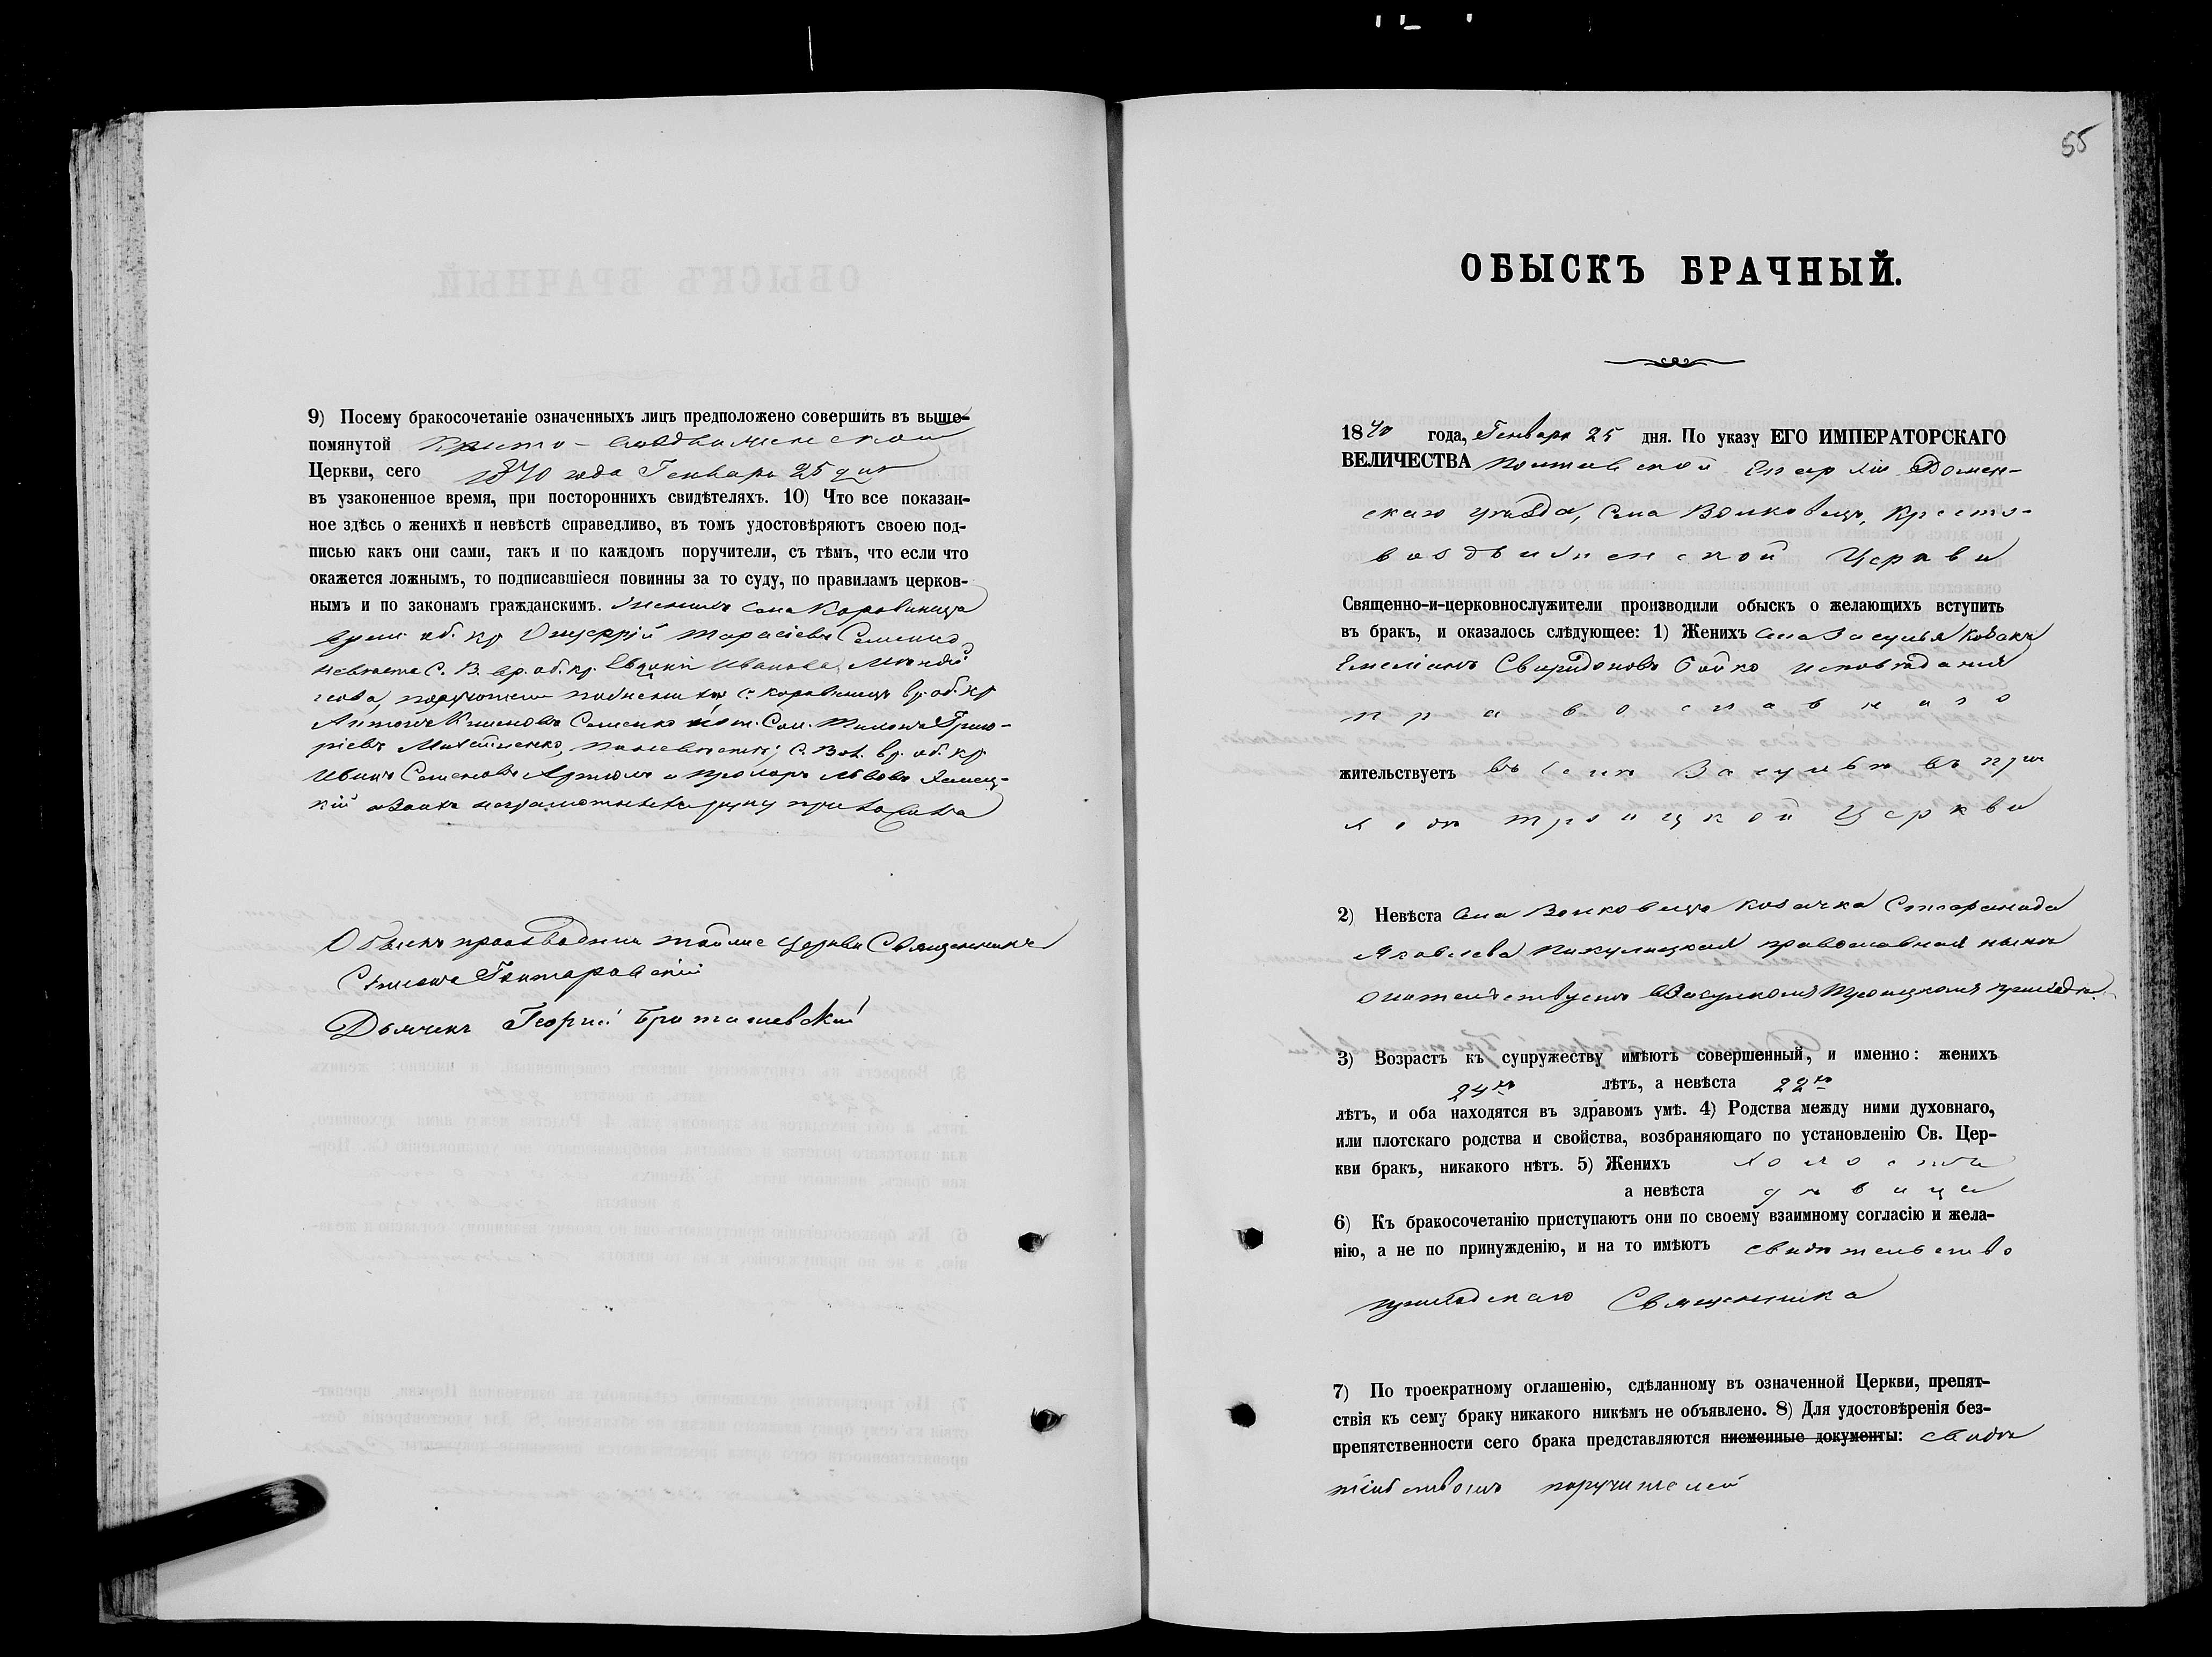 9) Посему бракосочетаніе означенныхъ лицъ предположено совершить въ выше-
помянутой Кресто-воздвиженской
Церкви, сего 1870 года Генваря 25 дня
въ узаконенное время, при постороннихъ свидѣтеляхъ. 10) Что все показан-
ное здѣсь о женихѣ и невѣстѣ справедливо, въ томъ удостовѣряютъ своею под-
писью какъ они сами, такъ и по каждомъ поручители, съ тѣмъ, что если что
окажется ложнымъ, то подписавшіеся повинны за то суду, по правиламъ церков-
нымъ и по законамъ гражданскимъ. Женихъ села Коровинецъ
врем. об. кр. Тарасіевъ Семенко
невѣста С. В. вр. об. кр. Евдокія Иванова
поручители по женихѣ с. Коровинецъ вр. об. кр.
Антонъ Климовъ Семенко Григо-
ріевъ по невѣстѣ; С. Вол. вр. об. кр.
Иванъ Семеновъ и Львовъ
кій
Обыскъ производили тоймже Церкви Священникъ
Симеонъ
Дьячекъ Георгій
55
ОБЫСКЪ БРАЧНЫЙ.
1870 года, Генваря 25 дня. По указу ЕГО ИМПЕРАТОРСКАГО
ВЕЛИЧЕСТВА Полтавской Епархіи Ромен-
скаго уѣзда, Села Волковецъ, Кресто-
воздвиженской Церкви
Священно-и-церковнослужители производили обыскъ о желающихъ вступить
въ бракъ, и оказалось слѣдующее: 1) Женихъ села Засулья Козакъ
Емеліанъ Свиридоновъ Бойко исповѣданія
православнаго
жительствуетъ въ селѣ Засульѣ въ при
ходѣ Троицкой Церкви
2) Невѣста Села Волковецъ козачка Стефанида
Яковлева Никулицкая православная нынѣ
жительствуетъ въ Засульскомъ Троицкомъ приходѣ.
3) Возрастъ къ супружеству имѣютъ совершенный, и именно: женихъ
24хъ лѣтъ, а невѣста 22хъ
лѣтъ, и оба находятся въ здравомъ умѣ. 4) Родства между ними духовнаго,
или плотскаго родства и свойства, возбраняющаго по установленію Св. Цер-
кви бракъ, никакого нѣтъ. 5) Женихъ холостъ
а невѣста дѣвица
6) Къ бракосочетанію приступаютъ они по своему взаимному согласію и жела-
нію, а не по принужденію, и на то имѣютъ свидѣтельство
приходскаго Священника
7) По троекратному оглашенію, сдѣланному въ означенной Церкви, препят-
ствія къ сему браку никакого никѣмъ не объявлено. 8) Для удостовѣренія без-
препятственности сего брака представляются писменные документы: свидѣ
тельствомъ поручителей